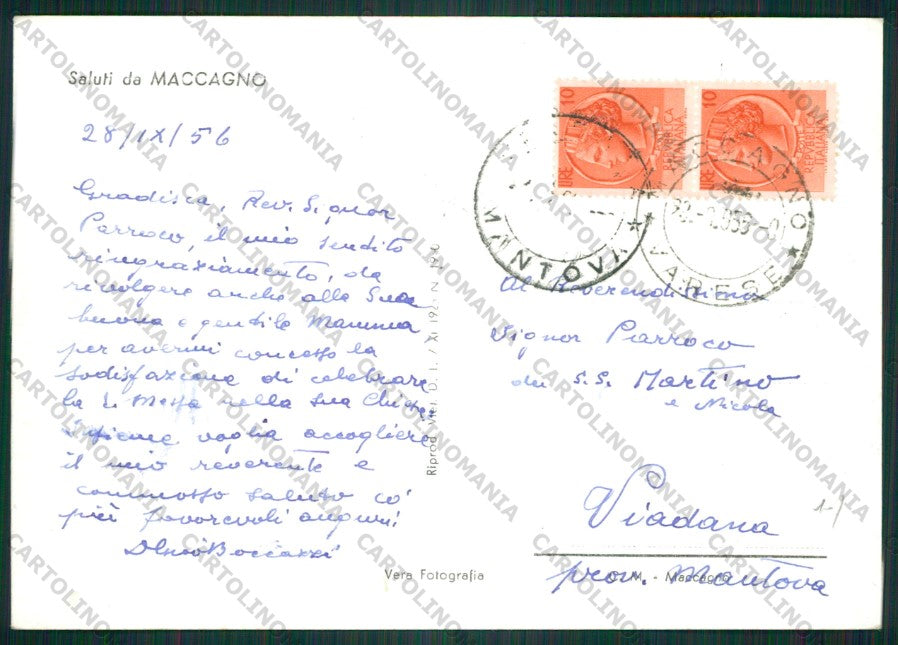 Saluti da MACCAGNO
28/IX/56
Gradisca, Rev. Signor
Parroco, il mio sentito
ringraziamento, da
rivolgere anche alla Sua
buona e gentile Mamma
per avermi concesso la
sodisfazione di celebrare
la S. Messa nella Sua Chiesa
insieme voglia accogliere
il mio reverente e
commosso saluto co'
più favorevoli auguri!
Boccazzi
Riprod. Viet. D. T. / XI 195
Vera Fotografia
10 LIRE
REPUBBLICA ITALIANA
10 LIRE
REPUBBLICA ITALIANA
MANTOVA
MACCAGNO
VARESE
Al Reverendissimo
Signor Parroco
dei S.S. Martino
e Nicola
Viadana
prov. Mantova
- Maccagno
CARTOLINOMANIA